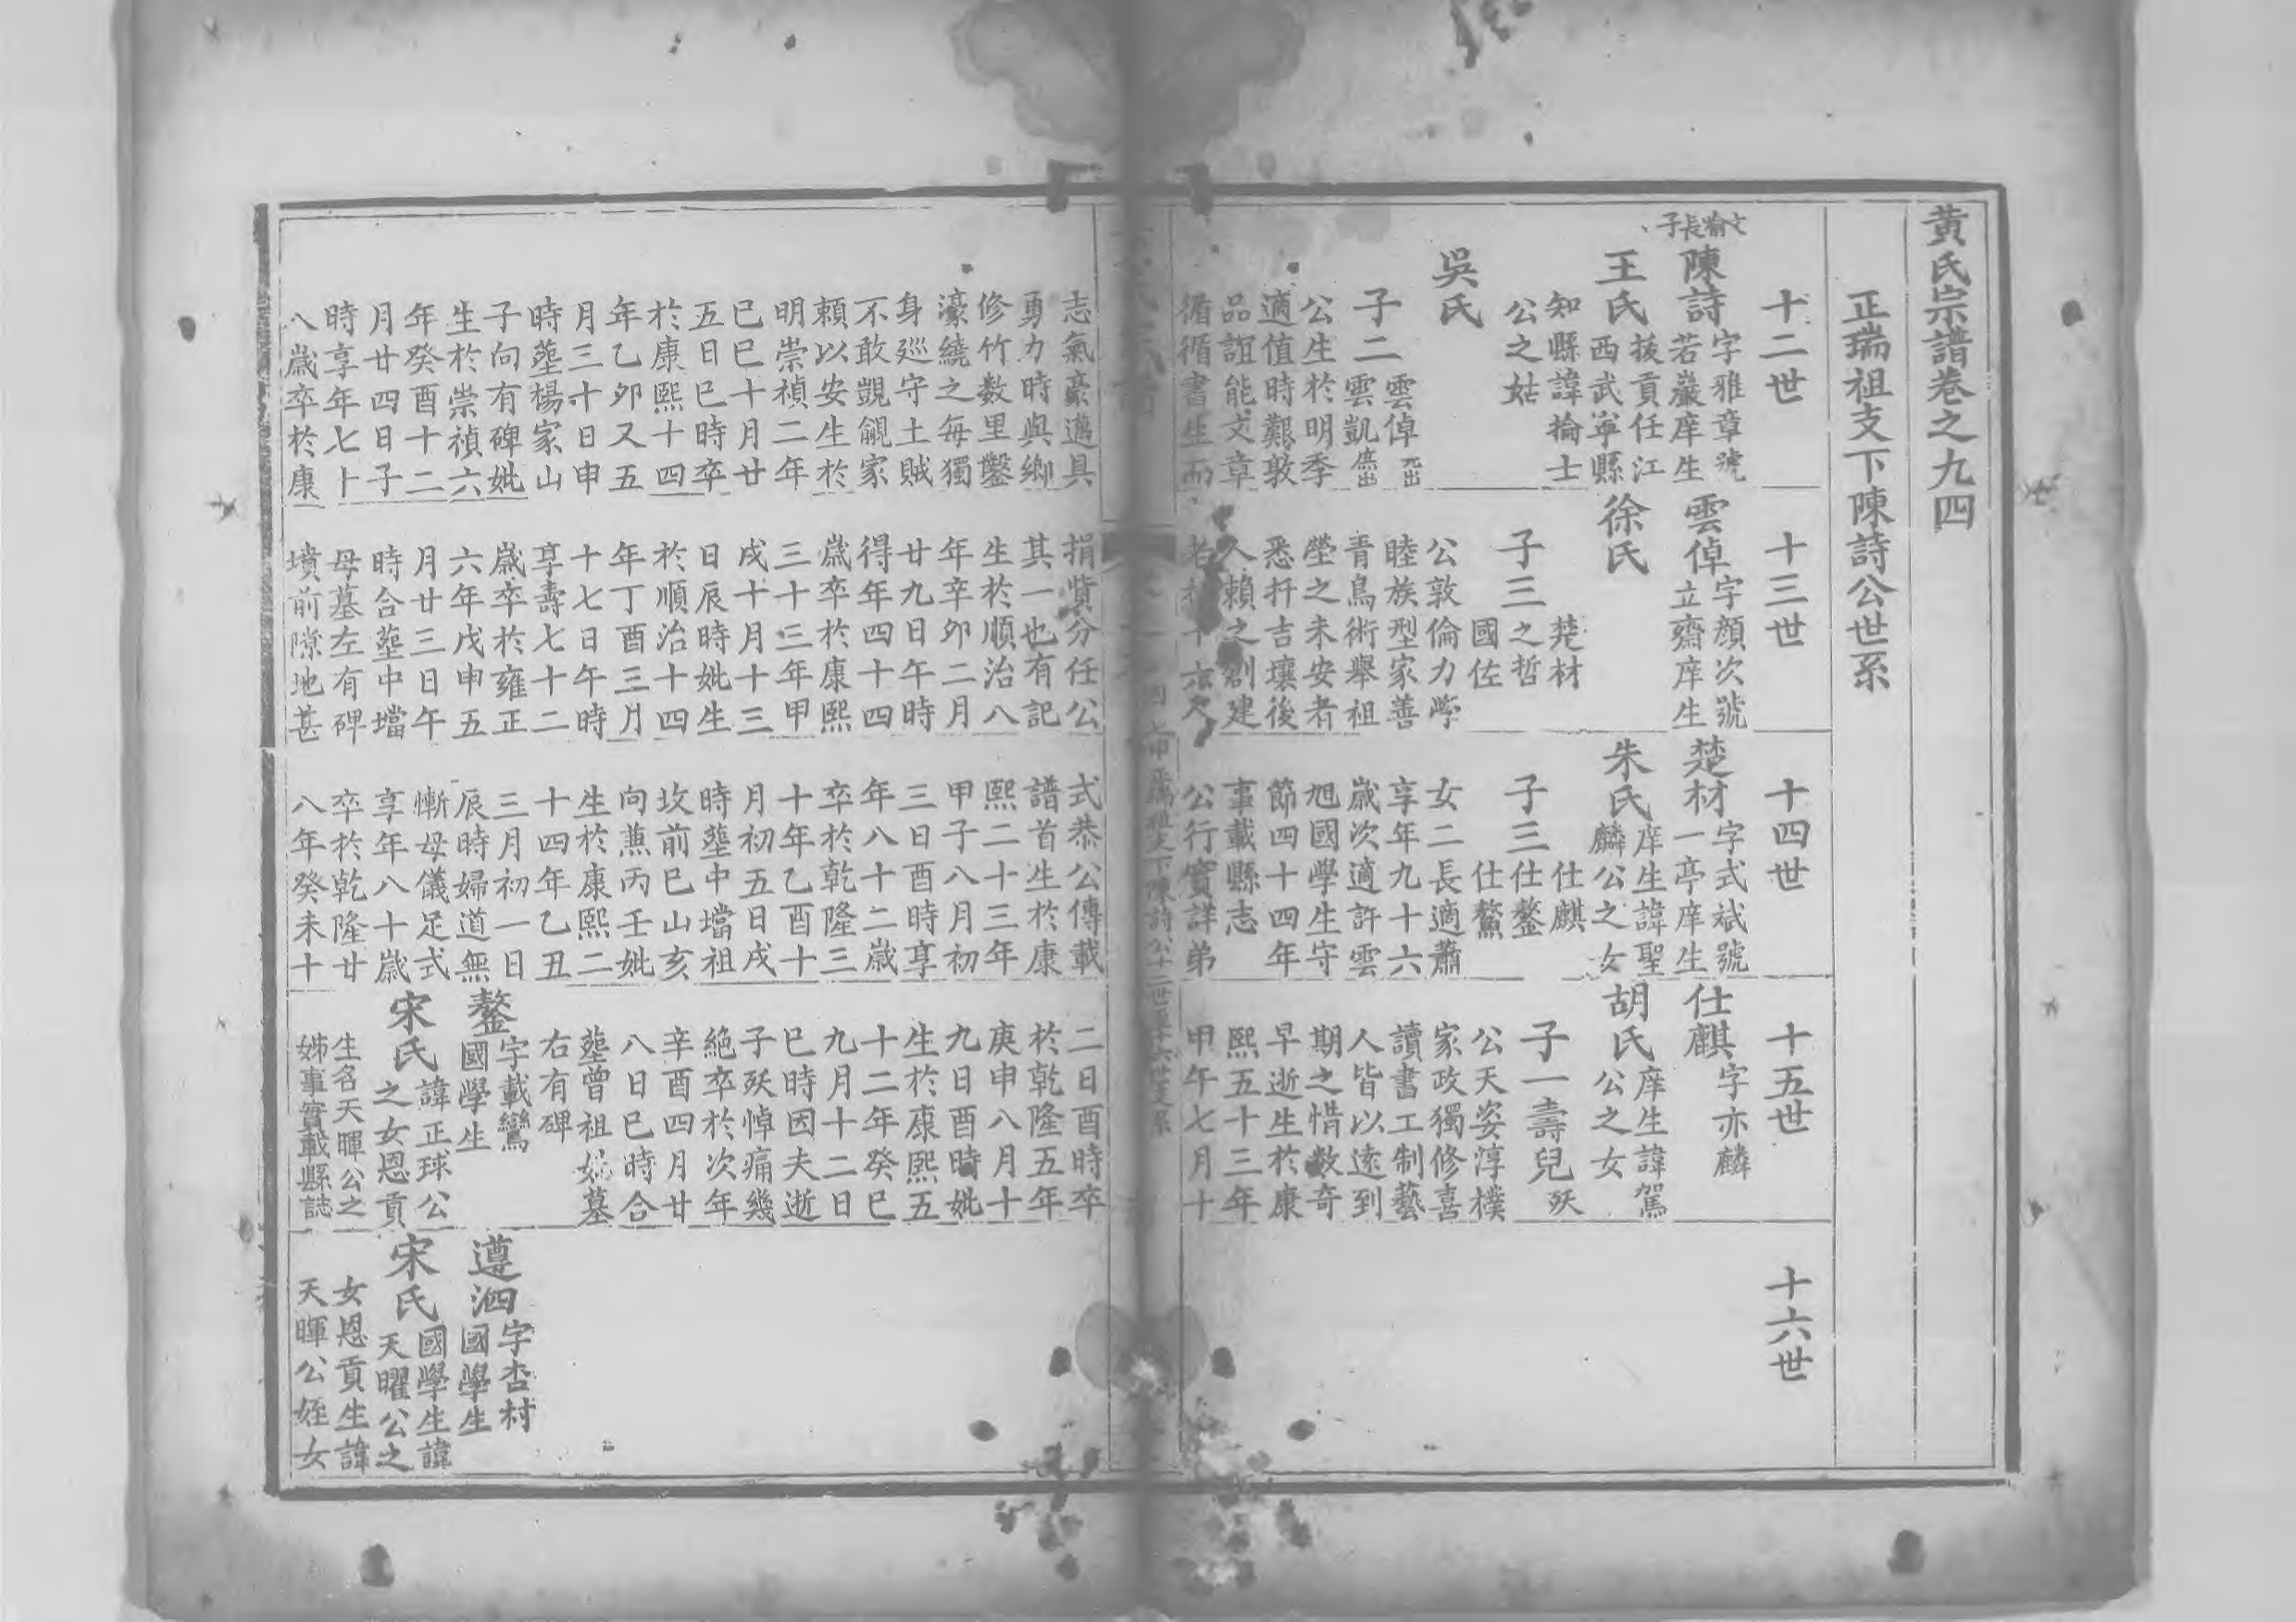 黃氏宗譜卷之九四
正瑞祖支下陳詩公世系
十二世
文翰長子
陳詩
字雅章號
若巖庠生
王氏
拔貢任江
西武寧縣
知縣諱掄士
公之姑
吳氏
子二
雲倬元出
雲凱庶出
公生於明季
適值時艱敦
品誼能文章
循循書生而
十三世
雲倬
字顏次號
立齋庠生
徐氏
子三
楚材
之哲
國佐
公敦倫力學
睦族型家善
青烏術舉祖
塋之未安者
悉扦吉壤後
人賴之創建
十四世
楚材
字式斌號
一亭庠生
朱氏
庠生諱聖
麟公之女
子三
仕麒
仕鏊
仕鰲
女二長適蕭
享年九十六
歲次適許雲
旭國學生守
節四十四年
事載縣志
公行實詳弟
十五世
仕麒
字亦麟
胡氏
庠生諱駕
公之女
子一壽兒殀
公天姿淳樸
家政獨修喜
讀書工制藝
人皆以遠到
期之惜數奇
早逝生於康
熙五十三年
甲午七月十
十六世
志氣豪邁具
勇力時與鄉
修竹数里鑿
濠繞之每獨
身廵守土賊
不敢覬覦家
賴以安生於
明崇禎二年
己巳十月廿
五日巳時卒
於康熙十四
年乙卯又五
月三十日申
時塟楊家山
子向有碑妣
生於崇禎六
年癸酉十二
月廿四日子
時享年七十
八歲卒於康
捐貲分任公
其一也有記
生於順治八
年辛卯二月
廿九日午時
得年四十四
歲卒於康熙
三十三年甲
戌十月十三
日辰時妣生
於順治十四
年丁酉三月
十七日午時
享壽七十二
歲卒於雍正
六年戊申五
月廿三日午
時合塟中壋
母墓左有碑
墳前隙地甚
式恭公傳載
譜首生於康
熙二十三年
甲子八月初
三日酉時享
年八十二歲
卒於乾隆三
十年乙酉十
月初五日戌
時塟中壋祖
坟前巳山亥
向蕪丙壬妣
生於康熙二
十四年乙丑
三月初一日
辰時婦道無
慚母儀足式
享年八十歲
卒於乾隆廿
八年癸未十
二日酉時卒
於乾隆五年
庚申八月十
九日酉時妣
生於康熙五
十二年癸巳
九月十二日
巳時因夫逝
子殀悼痛幾
絕卒於次年
辛酉四月廿
八日巳時合
塟曾祖妣墓
右有碑
鏊
字載鸞
國學生
宋氏
諱正球公
之女恩貢
生名天暉公之
姊事實載縣誌
遵泗
字杏村
國學生
宋氏
國學生諱
天曜公之
女恩貢生諱
天暉公姪女